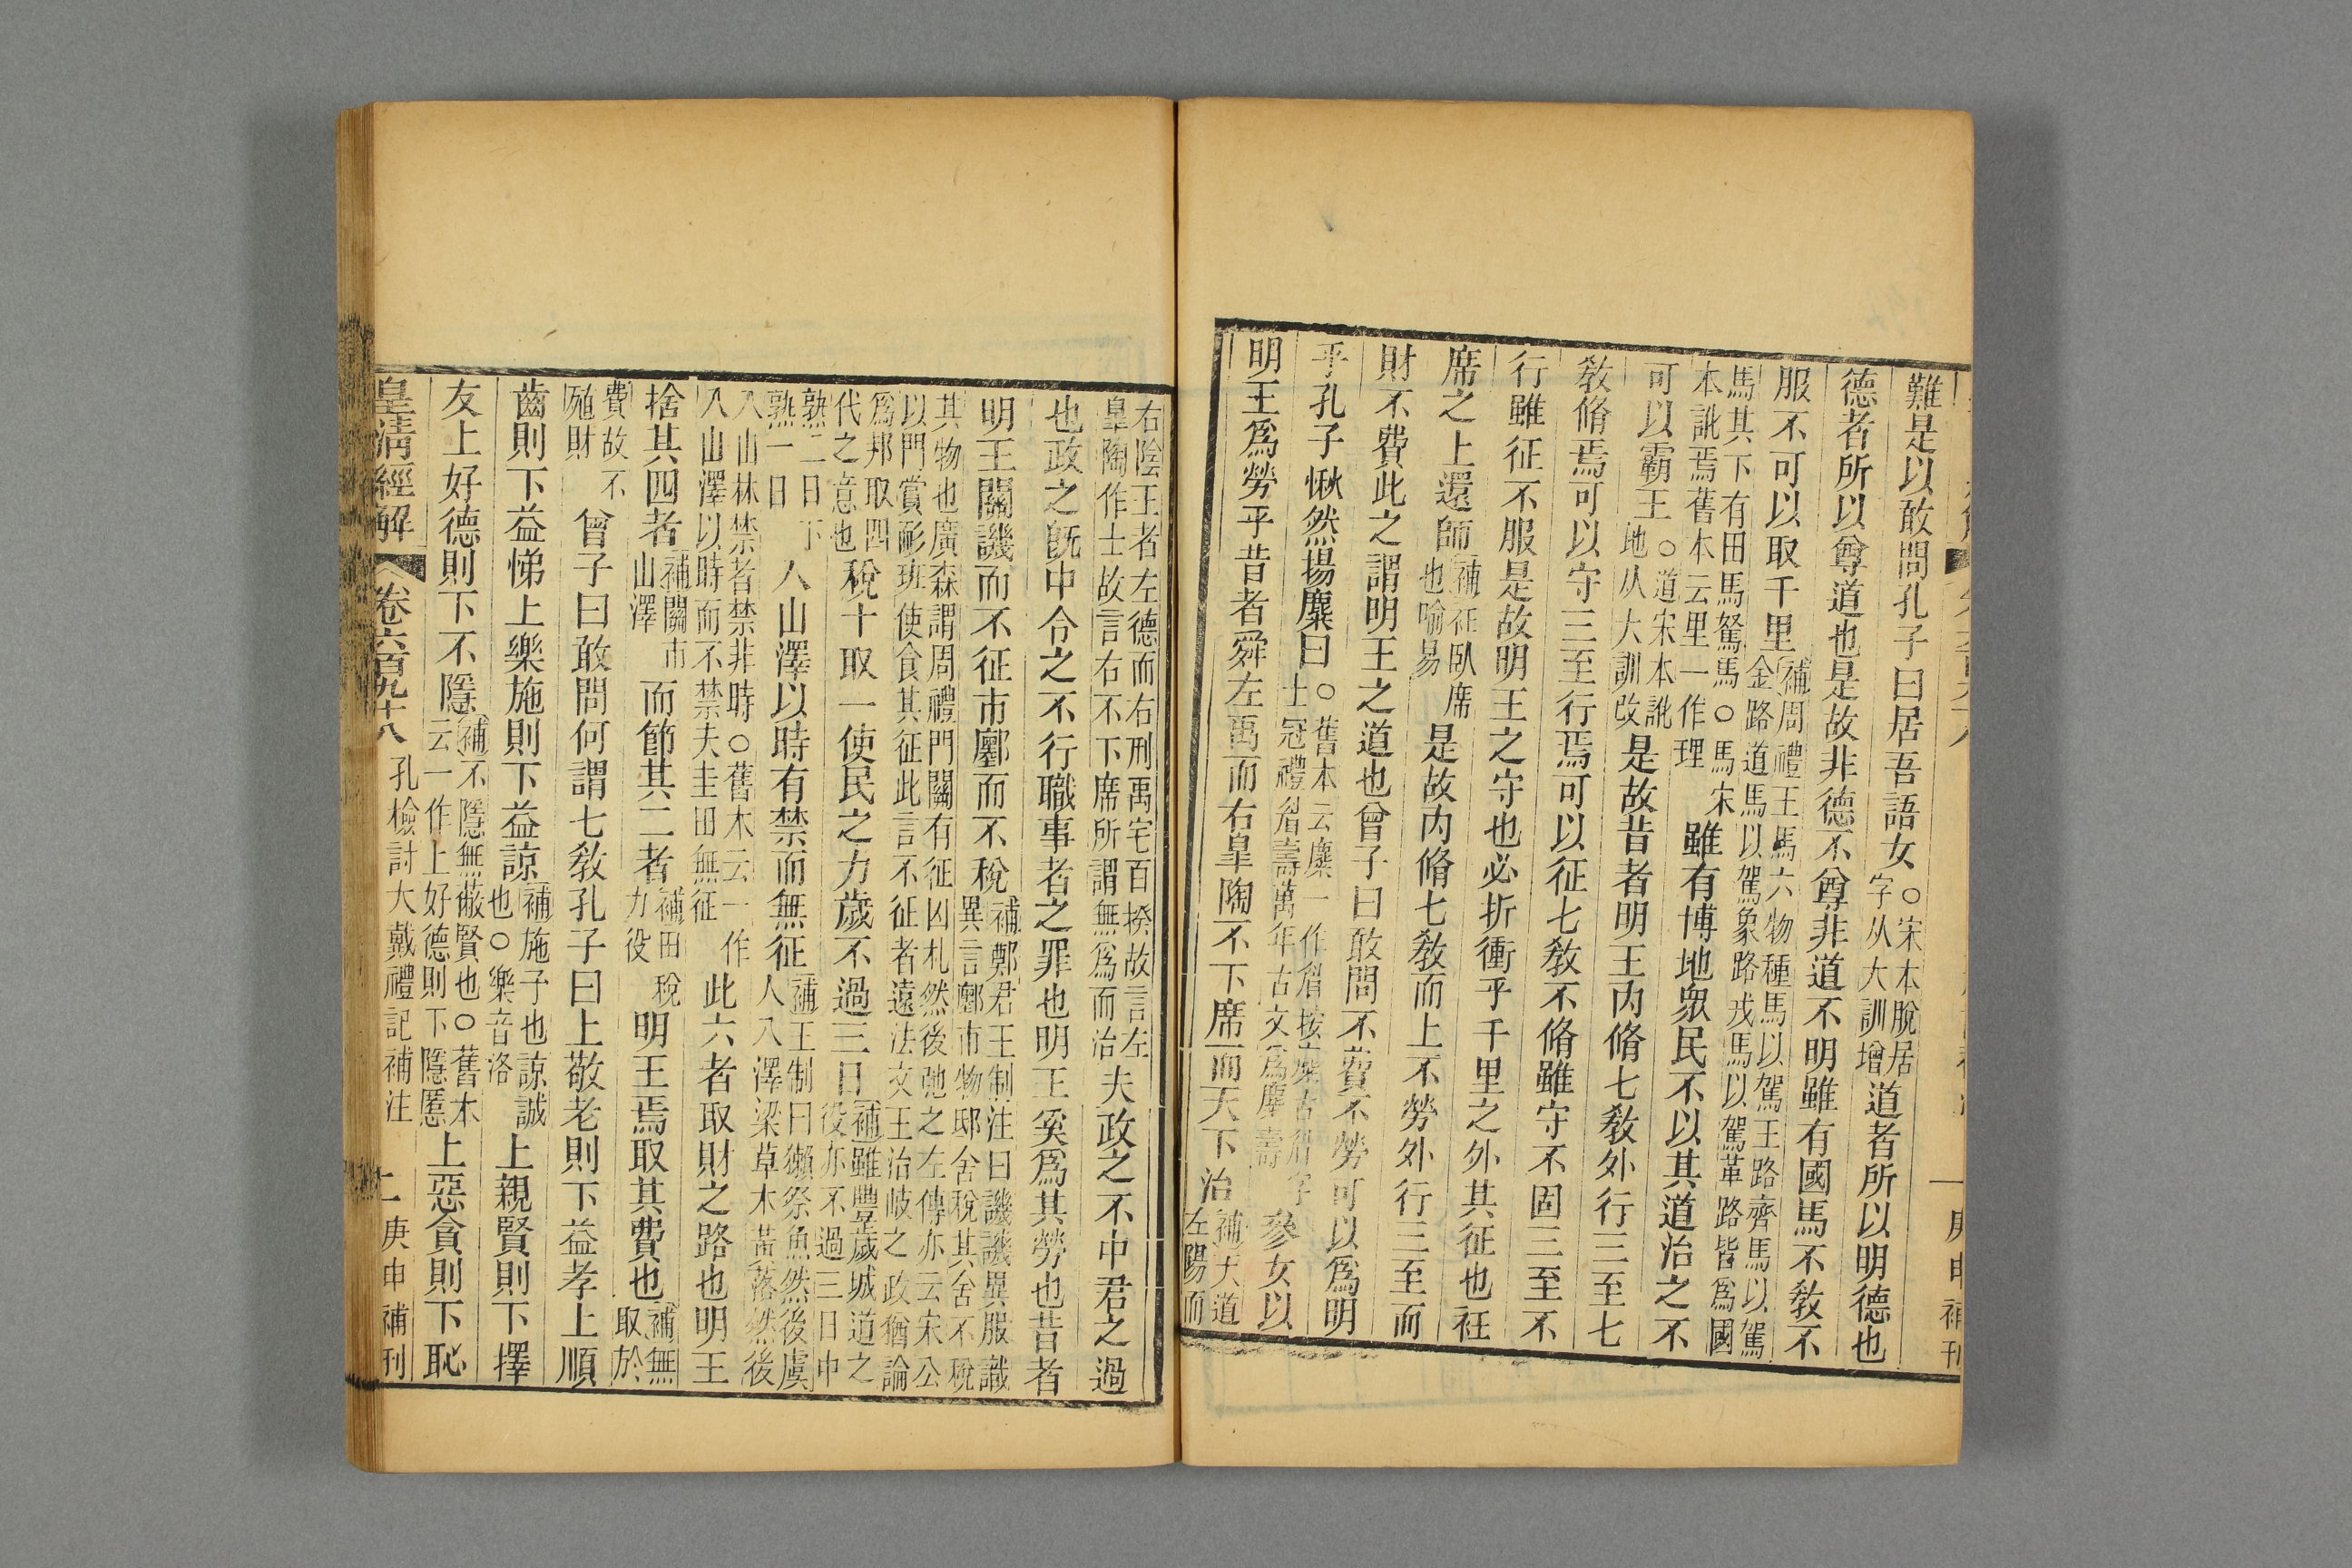 難是以敢問孔子曰居吾語女○宋本脫居字从大訓增道者所以明德也
德者所以尊道也是故非德不尊非道不明雖有國馬不敎不
服不可以取千里補周禮王馬六物種馬以駕王路齊馬以駕金路道馬以駕象路戎馬以駕革路皆爲國
馬其下有田馬駑馬○馬宋本訛焉舊本云里一作理雖有博地衆民不以其道治之不
可以霸王○道宋本訛地从大訓改是故昔者明王内脩七敎外行三至七
敎脩焉可以守三至行焉可以征七敎不脩雖守不固三至不
行雖征不服是故明王之守也必折衝乎千里之外其征也衽
席之上還師補衽臥席也喻易是故内脩七敎而上不勞外行三至而
財不費此之謂明王之道也曾子曰敢問不費不勞可以爲明
乎孔子愀然揚麋曰○舊本云麋一作眉按麋古眉字士冠禮眉壽萬年古文爲麋壽參女以
明王爲勞乎昔者舜左禹而右皐陶不下席而天下治補天道左陽而
右陰王者左德而右刑禹宅百揆故言左皐陶作士故言右不下席所謂無爲而治夫政之不中君之過
也政之旣中令之不行職事者之罪也明王奚爲其勞也昔者
明王關譏而不征市鄽而不稅補鄭君王制注曰譏譏異服識異言鄽市物邸舍稅其舍不稅
其物也廣森謂周禮門關有征凶札然後弛之左傳亦云宋公以門賞耏班使食其征此言不征者遠法文王治岐之政猶論
爲邦取四代之意也稅十取一使民之力歲不過三日補雖豐歲城道之役亦不過三日中
熟二日下熟一日入山澤以時有禁而無征補王制曰獺祭魚然後虞人入澤梁草木黃落然後
入山林禁者禁非時○舊本云一作入山澤以時而不禁夫圭田無征此六者取財之路也明王
捨其四者補關市山澤而節其二者補田稅力役明王焉取其費也補無取於
費故不殖財曾子曰敢問何謂七敎孔子曰上敬老則下益孝上順
齒則下益悌上樂施則下益諒補施予也諒誠也○樂音洛上親賢則下擇
友上好德則下不隱補不隱無蔽賢也○舊本云一作上好德則下隱慝上惡貪則下恥
皇清經解 卷六百九十八 孔檢討大戴禮記補注 二 庚申補刊